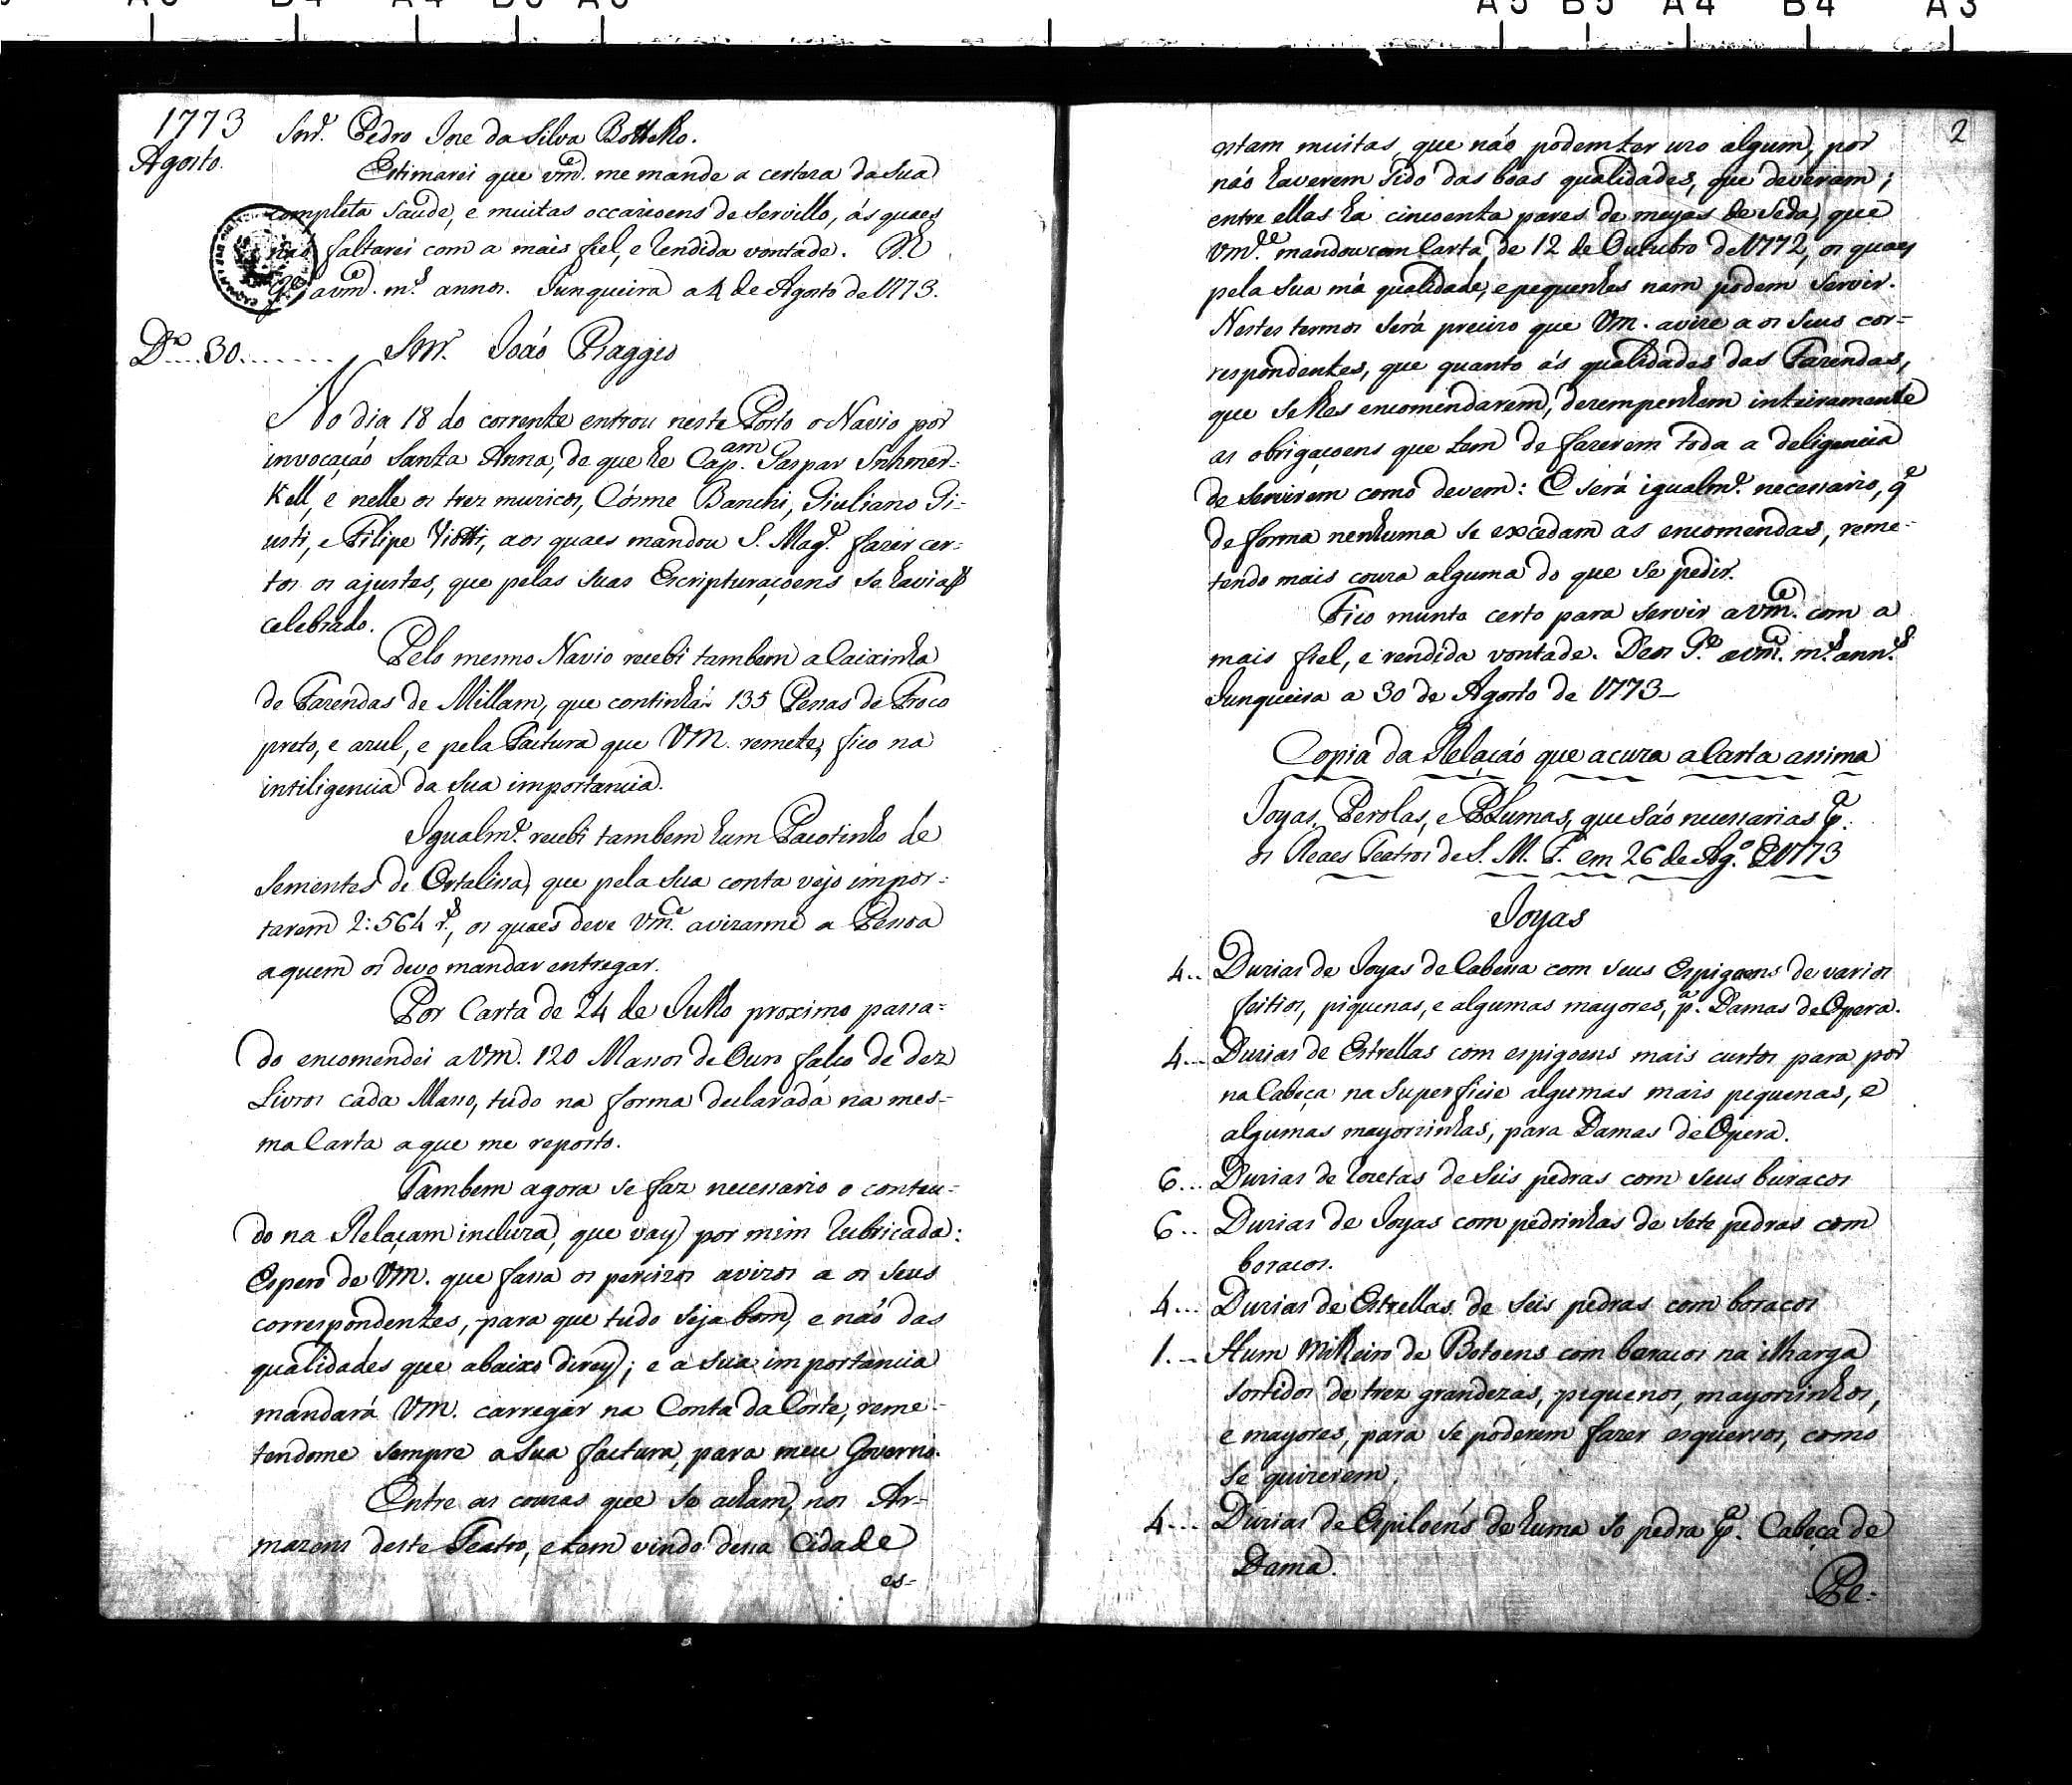 A3 B4 A4 B5 A5
A5 B5 A4 B4 A3
1773
Agosto.
Snr. Pedro Joze da Silva Bottelho.
Estimarei que vmce. me mande a certeza da Sua
completa Saude, e muitas occazioens de Servillo, ás quaes
não faltarei com a mais fiel, e Rendida vontade. D.s
G.e a vmce. m.s annos. Junqueira a 4 de Agosto de 1773.
D.to 30.
Snr. João Piaggio
No dia 18 do corrente entrou neste Porto o Navio por
invocação Santa Anna, de que he Cap.am Gaspar Snhmer=
Kell, e nelle os trez muzicos, Cósme Banchi, Giuliano Gi=
usti, e Filipe Viotti, aos quaes mandou S. Mag.e fazer cer=
tos os ajustes, que pelas Suas Escripturaçoens se havia
celebrado.
Pelo mesmo Navio recebi tambem a Caixinha
de Fazendas de Millam, que continhá 135 Pessas de Froco
preto, e azul, e pela Factura que VM. remete, fico na
intiligencia da Sua importancia.
Igualm.e recebi tambem hum Pacotinho de
Sementes de Ortalissa, que pela Sua conta vejo impor=
tarem 2:564 r.s, os quaes deve Vmce. avizarme a Pessoa
aquem os devo mandar entregar.
Por Carta de 24 de Julho proximo passa=
do encomendei a Vm. 120 Massos de Ouro falço de dez
Livros cada Masso, tudo na forma declarada na mes=
ma Carta a que me reporto.
Tambem agora se faz necessario o conteu=
do na Relaçam incluza, que vay por mim Rubricada:
Espero de VM. que fassa os percizos avizos a os seus
correspondentes, para que tudo seja bom, e não das
qualidades que abaixo direy; e a Sua importancia
mandará VM. carregar na Conta da Corte, reme=
tendome sempre a Sua factura, para meu Governo.
Entre as couzas que se acham nos Ar=
mazens deste Teatro, e tem vindo dessa Cidade
es-
2
estam muitas, que não podem ter uzo algum, por
não haverem Sido das boas qualidades, que deveram;
entre ellas ha cincoenta pares de meyas de Seda, que
Vmce. mandou com Carta de 12 de Outubro de 1772, os quaes
pela Sua má qualidade, e pequenhes nam podem Servir.
Nestes termos Será precizo que Vm. avize a os Seus cor=
respondentes, que quanto ás qualidades das Fazendas,
que Se lhes encomendarem, dezempenhem inteiramente
as obrigaçoens que tem de fazerem toda a deligencia
de Servirem como devem: E será igualm.e necessario, q.e
de forma nenhuma se excedam as encomendas, reme-
tendo mais couza alguma do que se pedir.
Fico munto certo para Servir a vmce. com a
mais fiel, e rendida vontade. Deos G.e a vmce. m.s ann.s
Junqueira a 30 de Agosto de 1773_
Copia da Relação que acuza a Carta assima
Joyas, Perolas, e Plumas, que são necessarias p.a
os Reaes Teatros de S. M. F. em 26 de Ag.o de 1773
Joyas
4.. Duzias de Joyas de Cabessa com seus Espigoens de varios
feitios, piquenas, e algumas mayores, p.a Damas de Opera.
4... Duzias de Estrellas com espigoens mais curtos para por
na Cabeça na Superficie algumas mais pequenas, e
algumas mayorzinhas, para Damas de Opera.
6... Duzias de Rozetas de Seis pedras com Seus buracos
6.. Duzias de Joyas com pedrinhas de Sete pedras com
boracos.
4... Duzias de Estrellas de Seis pedras com boracos
1.... Hum Milheiro de Botoens com boracos na ilharga
Sortidos de trez grandezas, piquenos, mayorzinhos,
e mayores, para Se poderem fazer esquersos, como
Se quizerem.
4.... Duzias de Espiloéns de huma So pedra p.a Cabeça de
Dama.
Pe=